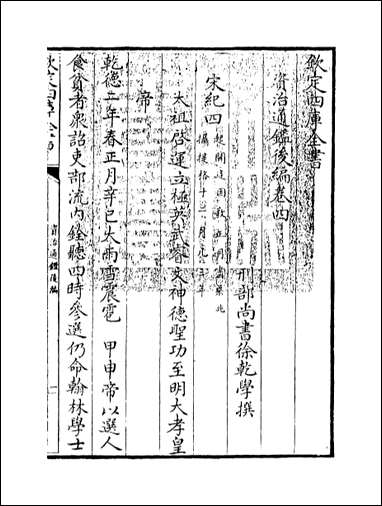 欽定四庫全書
資治通鑑後編卷四
刑部尚書徐乾學撰
宋紀四 起閼逢困敦正月盡柔兆
攝提格十二月凡三年
太祖啓運立極英武睿文神德聖功至明大孝皇
帝
乾德二年春正月辛巳大雨雪震電 甲申帝以選人
食貧者衆詔吏部流內銓聽四時參選仍命翰林學士
欽定四庫全書
資治通鑑後編
一